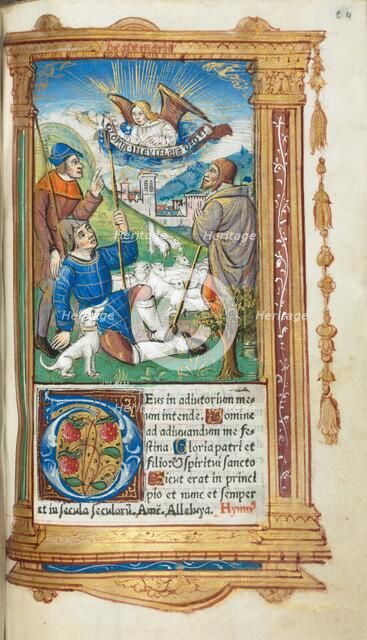 84
Gloria in excelsis deo
Deus in adiutorium me
um intende. Domine
ad adiuvandum me fe
stina Gloria patri et
filio: & spiritui sancto
Sicut erat in princi
pio et nunc et semper
et in secula seculorū. Amē. Alleluya. Hymn⁹